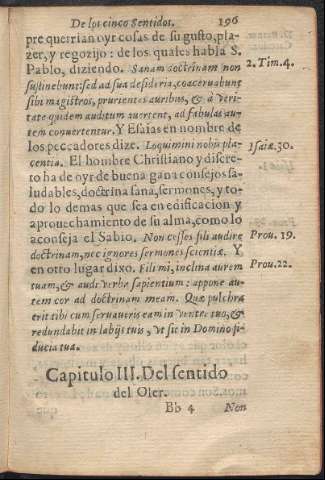 De los cinco Sentidos. 196
pre querrian oyr cosas de su gusto, pla-
zer, y regozijo: de los quales habla S.
Pablo, diziendo. Sanam doctrinam non 2. Tim. 4.
sustinebunt: sed ad sua desideria, coaceruabunt
sibi magistros, prurientes auribus, & à veri-
tate quidem auditum auertent, ad fabulas au-
tem conuertentur. Y Esaias en nombre de
los peccadores dize. Loquimini nobis pla- Isaiæ. 30.
centia. El hombre Christiano y discre-
to ha de oyr de buena gana consejos sa-
ludables, doctrina sana, sermones, y to-
do lo demas que sea en edificacion y
aprouechamiento de su alma, como lo
aconseja el Sabio. Non cesses fili audire Prou. 19.
doctrinam, nec ignores sermones scientiæ. Y
en otro lugar dixo. Fili mi, inclina aurem Prou. 22.
tuam, & audi verba sapientium: appone au-
tem cor ad doctrinam meam. Quæ pulchra
erit tibi cum seruaueris eam in ventre tuo, &
redundabit in labijs tuis, vt sit in Domino fi-
ducia tua.
Capitulo III. Del sentido
del Oler.
Bb 4 Non